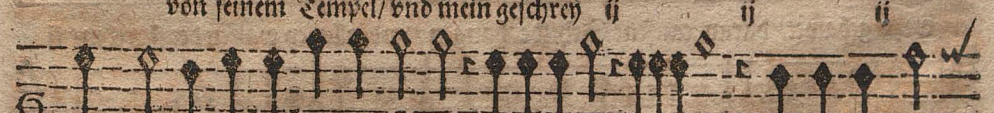 von seinem Tempel/ vnd mein geschrey ij ij ij